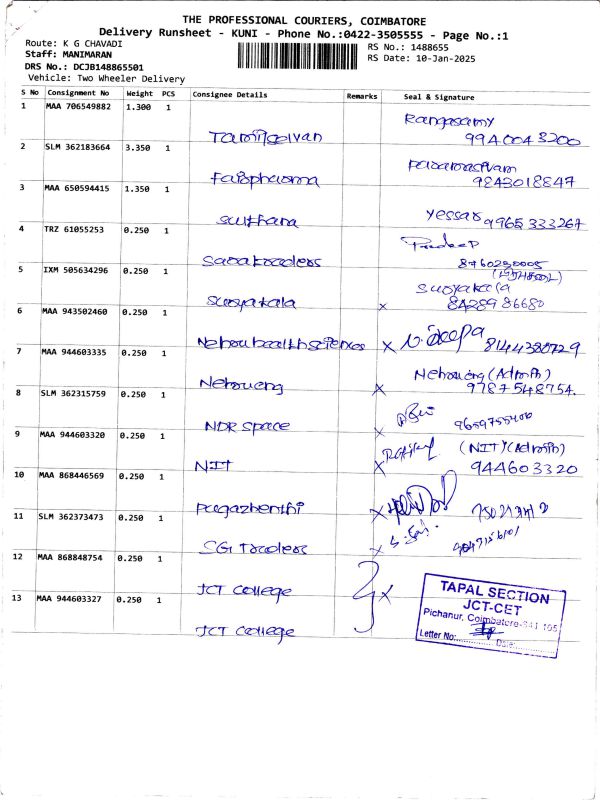 THE PROFESSIONAL COURIERS, COIMBATORE
Delivery Runsheet - KUNI - Phone No.:0422-3505555 - Page No.:1
Route: K G CHAVADI
RS No.: 1488655
Staff: MANIMARAN
RS Date: 10-Jan-2025
DRS No.: DCJB148865501
Vehicle: Two Wheeler Delivery
S No Consignment No Weight PCS Consignee Details Remarks Seal & Signature
1 MAA 706549882 1.300 1 Rangasamy
Tamilselvan 9940043200
2 SLM 362183664 3.350 1 Paramasivam
Fairpharma 9843018847
3 MAA 650594415 1.350 1 Yessar
Suthara 9965333267
4 TRZ 61055253 0.250 1 Pradeep
Saratraders 8760230005
5 IXM 505634296 0.250 1 Suryakala
Suryakala x 84289 86680
6 MAA 943502460 0.250 1
Nehru health sciences x N. Deepa 8144380729
7 MAA 944603335 0.250 1 Nehrueng (Admin)
Nehrueng x 9787548754.
8 SLM 362315759 0.250 1
NDR space x 9659755400
9 MAA 944603320 0.250 1 (NIT)(Admin)
NIT x 944603320
10 MAA 868446569 0.250 1
Pugazhenthi x
11 SLM 362373473 0.250 1
SG Traders x
12 MAA 868848754 0.250 1
JCT College x
13 MAA 944603327 0.250 1
JCT College
TAPAL SECTION
JCT-CET
Pichanur, Coimbatore-641 105
Letter No:.............Date:............